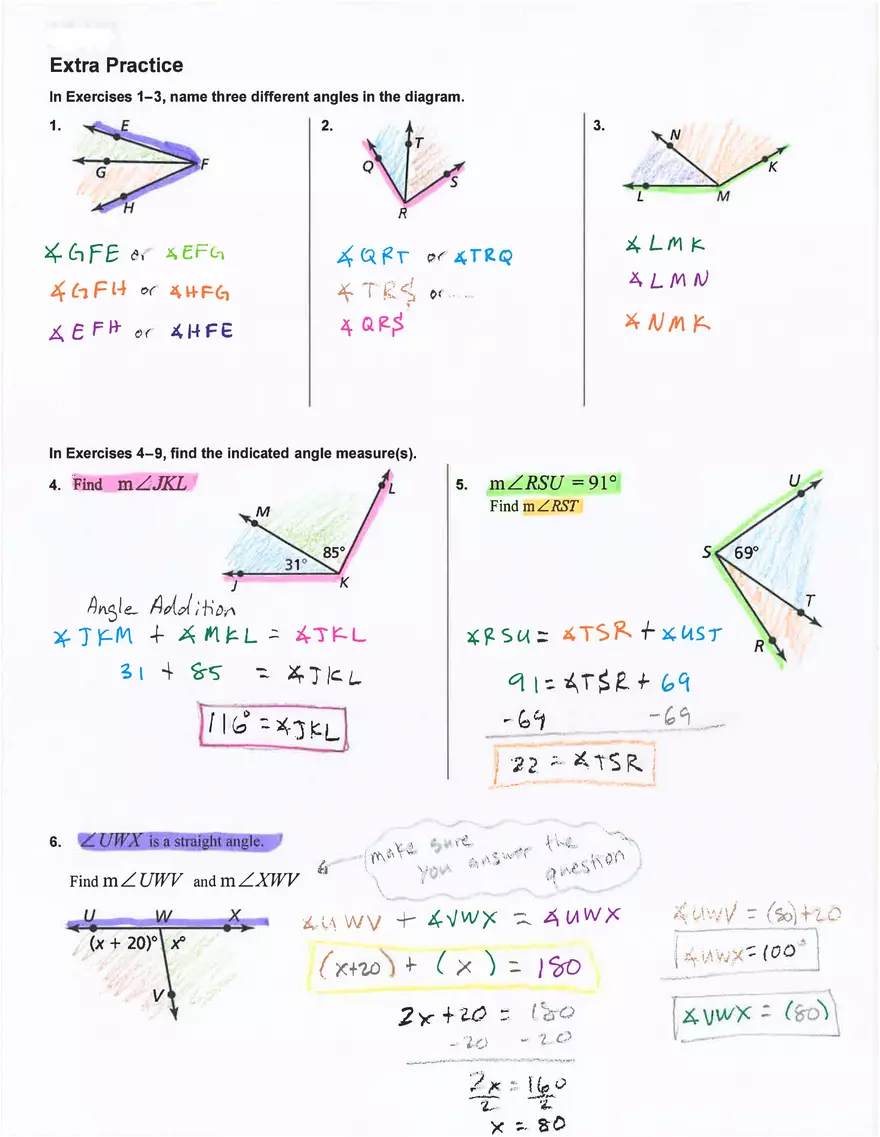 Extra Practice
In Exercises 1–3, name three different angles in the diagram.
1.
E
G
F
H
∡GFE or ∡EFG
∡GFH or ∡HFG
∡EFH or ∡HFE
2.
Q
T
S
R
∡QRT or ∡TRQ
∡TRS or .....
∡QRS
3.
N
K
L
M
∡LMK
∡LMN
∡NMK
In Exercises 4–9, find the indicated angle measure(s).
4. Find m∠JKL
L
M
85°
31°
J
K
Angle Addition
∡JKM + ∡MKL = ∡JKL
31 + 85 = ∡JKL
116° = ∡JKL
5. m∠RSU = 91°
Find m∠RST
U
S
69°
T
R
∡RSU = ∡TSR + ∡UST
91 = ∡TSR + 69
-69 -69
22 = ∡TSR
6. ∠UWX is a straight angle.
Find m∠UWV and m∠XWV
make sure
you answer the
question
U W X
(x + 20)° x°
V
∡UWV + ∡VWX = ∡UWX
(x+20) + (x) = 180
2x + 20 = 180
-20 -20
2x = 160
2 2
x = 80
∡UWV = (80)+20
∡UWX = 100°
∡VWX = (80)